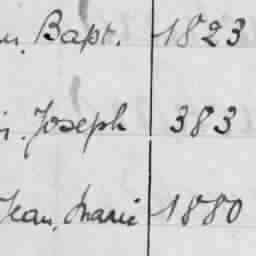 Bapt. 1823
Joseph 383
Jean, Marie 1880